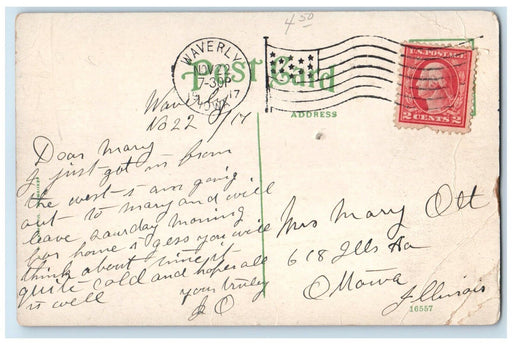 4 50
WAVERLY
NOV 22
7-30P
1917
IOWA
Post Card
U.S. POSTAGE
2 CENTS 2
ADDRESS
Waverly
No 22 / 17
Dear Mary
I just got in from
the west & am going
out to Mary and will
leave saurday morning
for home I gess you will
think about time it
quite cold and hope all
is well yours truly
J O
Mrs Mary Ott
618 Ills Ha
Ottawa
Illinois
16557